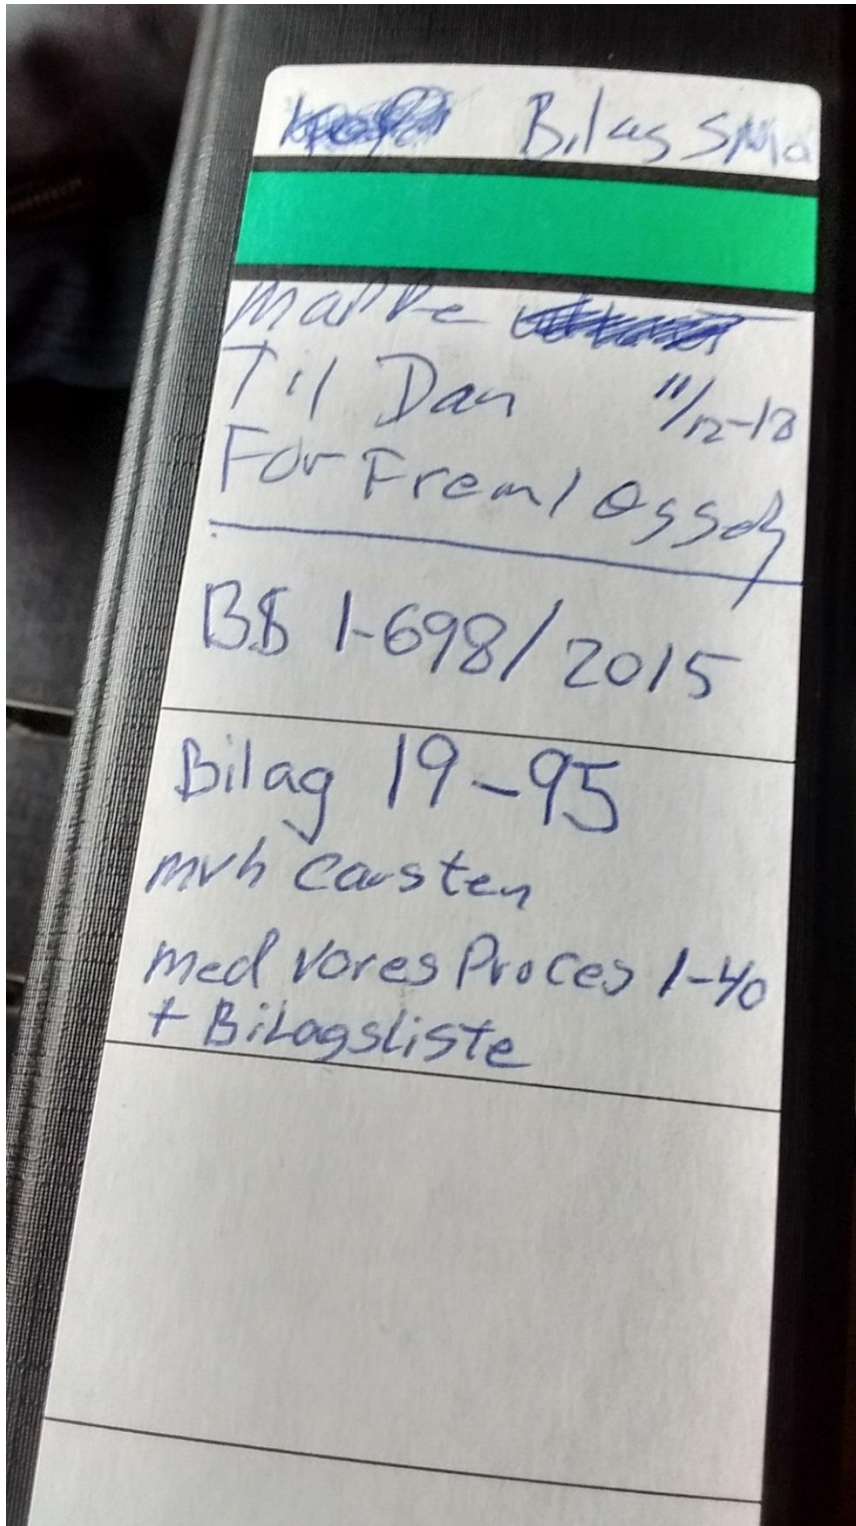 Bilag
Mappe
Til Dan 11/12-18
For Freml Ossely
BS 1-698/2015
Bilag 19-95
mvh Carsten
med vores Proces 1-40
+ Bilagsliste